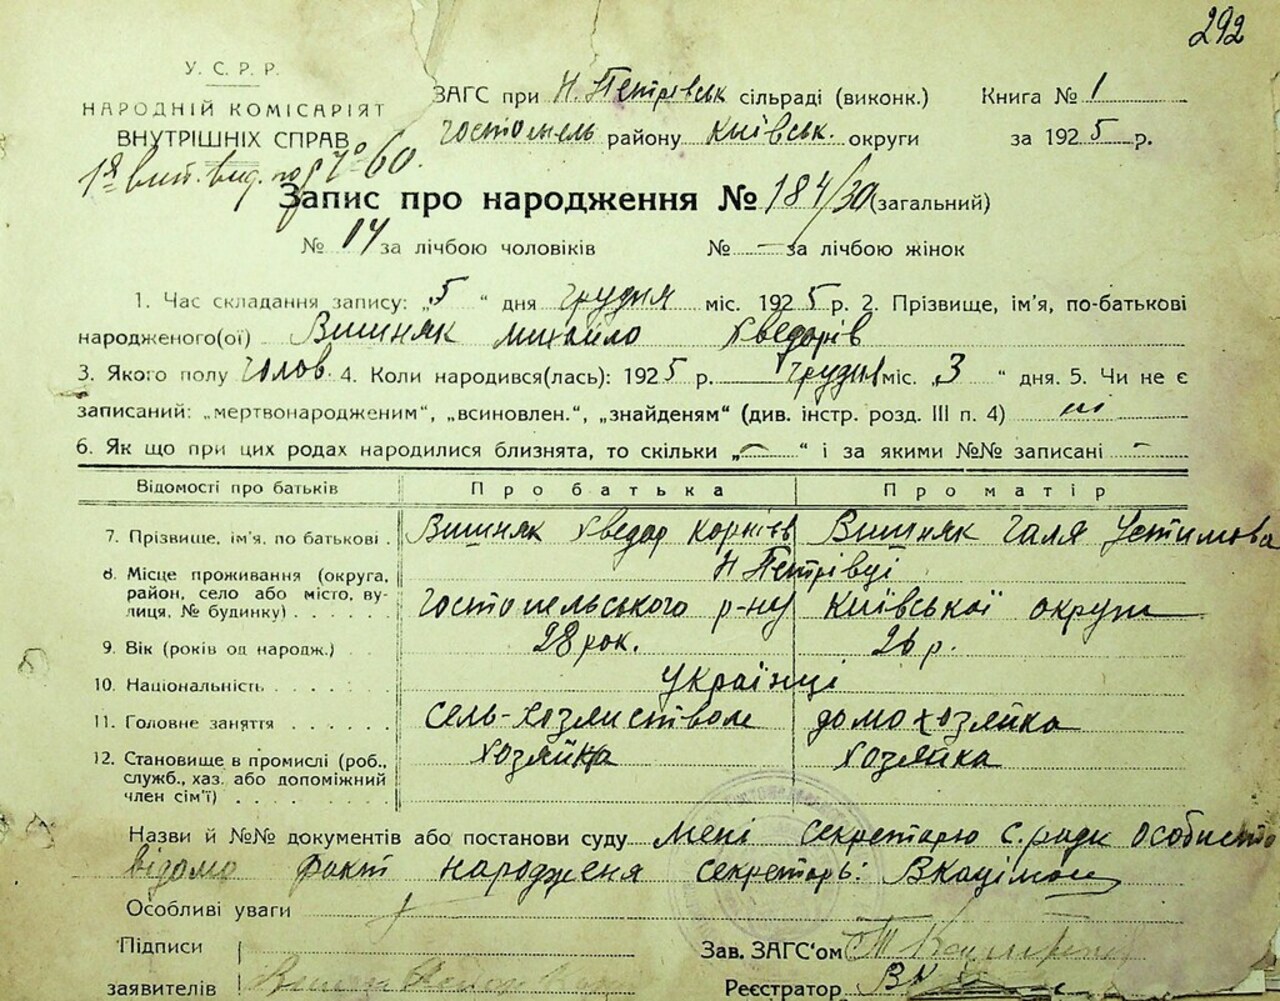 292
У. С. Р. Р.
НАРОДНІЙ КОМІСАРІЯТ
ВНУТРІШНІХ СПРАВ
ЗАГС при Н. Петрівськ сільраді (виконк.) Книга № 1
Гостомель району Київськ. округи за 1925 р.
Запис про народження № 184/30 (загальний)
№ 14 за лічбою чоловіків № — за лічбою жінок
1. Час складання запису: „5“ дня грудня міс. 1925 р. 2. Прізвище, ім'я, по-батькові
народженого(ої) Вишняк Михайло Хведорів
3. Якого полу Чолов. 4. Коли народився(лась): 1925 р. грудня міс. „3“ дня. 5. Чи не є
записаний: „мертвонародженим“, „всиновлен.“, „знайденям“ (див. інстр. розд. III п. 4) ні
6. Як що при цих родах народилися близнята, то скільки „—“ і за якими №№ записані —
Відомості про батьків Про батька Про матір
7. Прізвище, ім'я, по батькові . Вишняк Хведор Корнієв Вишняк Галя Устимова
8. Місце проживання (округа, Н Петрівці
район, село або місто, ву-
лиця, № будинку) . . . . . Гостомельського р-ну Київської округи
9. Вік (років од народж.) 28 рок. 26 р.
10. Національність . . . . . . Українці
11. Головне заняття . . . . . . Сель-хозяиством домохозяйка
12. Становище в промислі (роб., хозяйка хозяйка
служб., хаз. або допоміжний
член сім'ї) . . . . . . . .
Назви й №№ документів або постанови суду Мені секретарю с. ради особисто
відомо факт народженя Секретарь:
Особливі уваги
Підписи Зав. ЗАГС'ом
заявителів Реєстратор